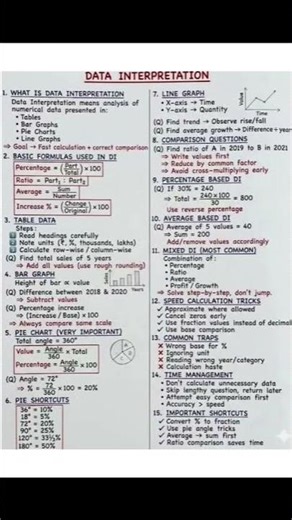 DATA INTERPRETATION
1. WHAT IS DATA INTERPRETATION
Data Interpretation means analysis of
numerical data presented in:
• Tables
• Bar Graphs
• Pie Charts
• Line Graphs
⇒ Goal → Fast calculation + correct comparison
2. BASIC FORMULAS USED IN DI
Percentage = (Part / Total) × 100
Ratio = Part₁ : Part₂
Average = Sum / Number
Increase % = (Change / Original) × 100
3. TABLE DATA
Steps:
1 Read headings carefully
2 Note units (₹, %, thousands, lakhs)
3 Calculate row-wise / column-wise
(Q) Find total sales of 5 years
⇒ Add all values (use rough rounding)
4. BAR GRAPH
Height of bar ∝ value
(Q) Difference between 2018 & 2020
⇒ Subtract values
(Q) Percentage increase
⇒ (Increase / Base) × 100
⇒ Always compare same scale
5. PIE CHART (VERY IMPORTANT)
Total angle = 360°
Value = Angle / 360 × Total
Percentage = Angle / 360 × 100
(Q) Angle = 72°
⇒ % = 72 / 360 × 100 = 20%
6. PIE SHORTCUTS
36° = 10%
18° = 5%
72° = 20%
90° = 25%
120° = 33⅓%
180° = 50%
7. LINE GRAPH
• X-axis → Time
• Y-axis → Quantity
Value
Time
(Q) Find trend → Observe rise/fall
(Q) Find average growth → Difference ÷ year
8. COMPARISON QUESTIONS
(Q) Find ratio of A in 2019 to B in 2021
⇒ Write values first
⇒ Reduce by common factor
⇒ Avoid cross-multiplying early
9. PERCENTAGE BASED DI
(Q) If 30% = 240
⇒ Total = 240 × 100 / 30 = 800
Use reverse percentage
10. AVERAGE BASED DI
(Q) Average of 5 values = 40
⇒ Sum = 200
Add/remove values accordingly
11. MIXED DI (MOST COMMON)
Combination of:
• Percentage
• Ratio
• Average
• Profit / Growth
⇒ Solve step-by-step, don't jump.
12. SPEED CALCULATION TRICKS
✓ Approximate where allowed
✓ Cancel zeros early
✓ Use fraction values instead of decimal
✓ Use base comparison
13. COMMON TRAPS
✗ Wrong base for %
✗ Ignoring unit
✗ Reading wrong year/category
✗ Calculation haste
14. TIME MANAGEMENT
• Don't calculate unnecessary data
• Skip lengthy question, return later
• Attempt easy comparison first
• Accuracy > speed
15. IMPORTANT SHORTCUTS
✓ Convert % to fraction
✓ Use pie angle tricks
✓ Average → sum first
✓ Ratio comparison saves time